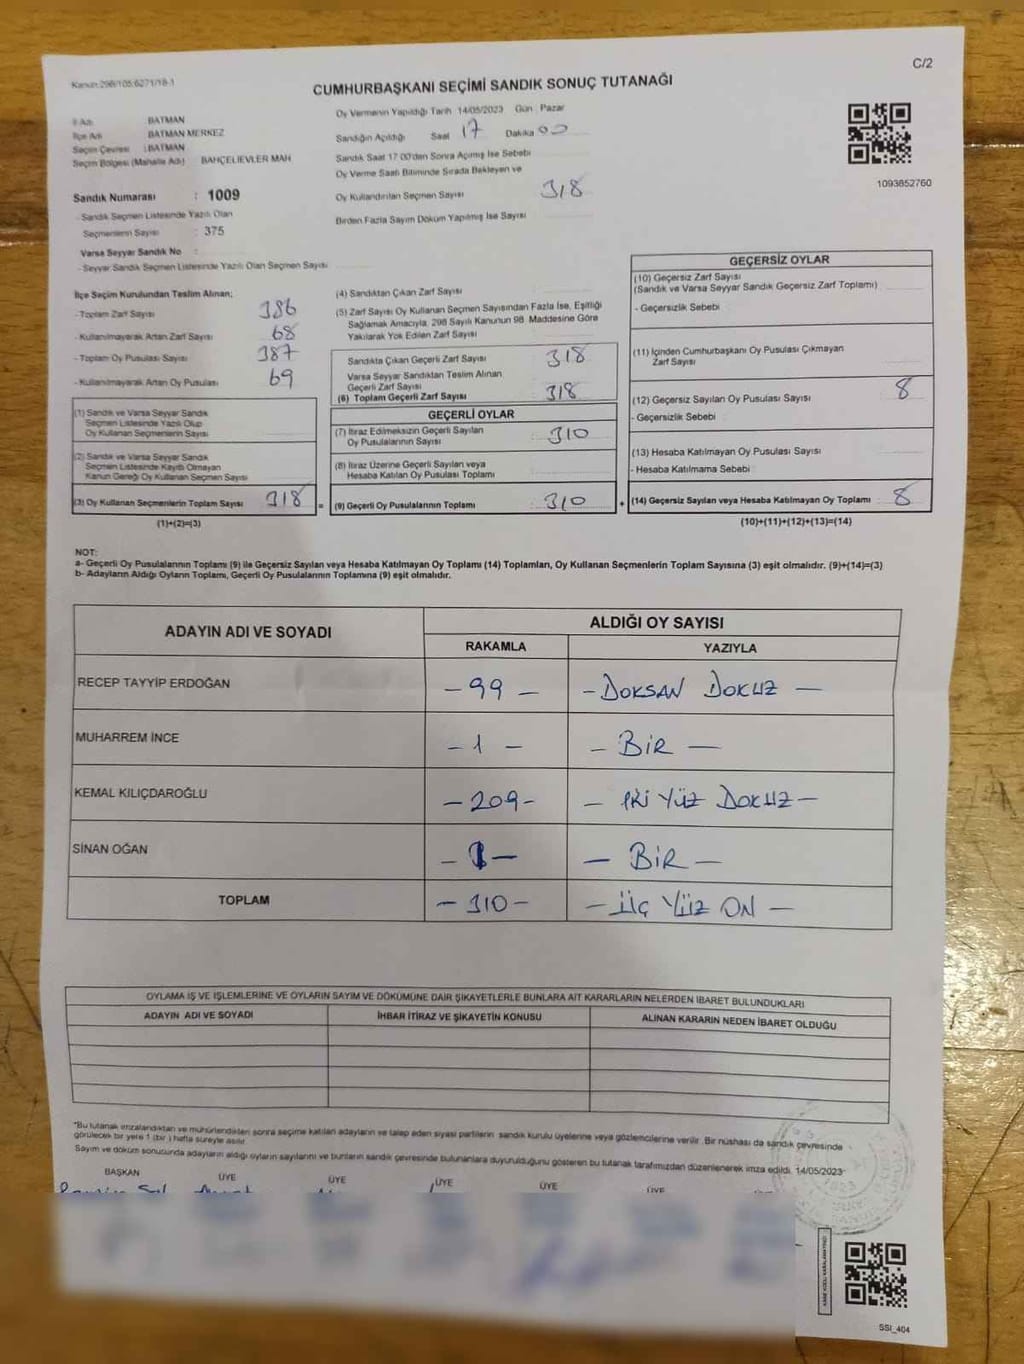 Kanun:298/105;6271/18-1
C/2
CUMHURBAŞKANI SEÇİMİ SANDIK SONUÇ TUTANAĞI
İl Adı BATMAN
İlçe Adı BATMAN MERKEZ
Seçim Çevresi : BATMAN
Seçim Bölgesi (Mahalle Adı) BAHÇELİEVLER MAH
Sandık Numarası : 1009
- Sandık Seçmen Listesinde Yazılı Olan
Seçmenlerin Sayısı : 375
Varsa Seyyar Sandık No :
- Seyyar Sandık Seçmen Listesinde Yazılı Olan Seçmen Sayısı
Oy Vermenin Yapıldığı Tarih 14/05/2023 Gün : Pazar
Sandığın Açıldığı Saat 17 Dakika 00
Sandık Saat 17:00'den Sonra Açılmış İse Sebebi
Oy Verme Saati Bitiminde Sırada Bekleyen ve
Oy Kullandırılan Seçmen Sayısı 318
Birden Fazla Sayım Döküm Yapılmış İse Sayısı
1093852760
İlçe Seçim Kurulundan Teslim Alınan;
- Toplam Zarf Sayısı 386
- Kullanılmayarak Artan Zarf Sayısı 68
- Toplam Oy Pusulası Sayısı 387
- Kullanılmayarak Artan Oy Pusulası 69
(1) Sandık ve Varsa Seyyar Sandık
Seçmen Listesinde Yazılı Olup
Oy Kullanan Seçmenlerin Sayısı
(2) Sandık ve Varsa Seyyar Sandık
Seçmen Listesinde Kayıtlı Olmayan
Kanun Gereği Oy Kullanan Seçmen Sayısı
(3) Oy Kullanan Seçmenlerin Toplam Sayısı 318
(1)+(2)=(3)
(4) Sandıktan Çıkan Zarf Sayısı
(5) Zarf Sayısı Oy Kullanan Seçmen Sayısından Fazla İse, Eşitliği
Sağlamak Amacıyla, 298 Sayılı Kanunun 98. Maddesine Göre
Yakılarak Yok Edilen Zarf Sayısı
Sandıkta Çıkan Geçerli Zarf Sayısı 318
Varsa Seyyar Sandıktan Teslim Alınan
Geçerli Zarf Sayısı
(6) Toplam Geçerli Zarf Sayısı 318
GEÇERLİ OYLAR
(7) İtiraz Edilmeksizin Geçerli Sayılan
Oy Pusulalarının Sayısı : 310
(8) İtiraz Üzerine Geçerli Sayılan veya
Hesaba Katılan Oy Pusulası Toplamı
= (9) Geçerli Oy Pusulalarının Toplamı : 310 +
GEÇERSİZ OYLAR
(10) Geçersiz Zarf Sayısı
(Sandık ve Varsa Seyyar Sandık Geçersiz Zarf Toplamı)
- Geçersizlik Sebebi
(11) İçinden Cumhurbaşkanı Oy Pusulası Çıkmayan
Zarf Sayısı
(12) Geçersiz Sayılan Oy Pusulası Sayısı 8
- Geçersizlik Sebebi
(13) Hesaba Katılmayan Oy Pusulası Sayısı
- Hesaba Katılmama Sebebi
(14) Geçersiz Sayılan veya Hesaba Katılmayan Oy Toplamı 8
(10)+(11)+(12)+(13)=(14)
NOT:
a- Geçerli Oy Pusulalarının Toplamı (9) ile Geçersiz Sayılan veya Hesaba Katılmayan Oy Toplamı (14) Toplamları, Oy Kullanan Seçmenlerin Toplam Sayısına (3) eşit olmalıdır. (9)+(14)=(3)
b- Adayların Aldığı Oyların Toplamı, Geçerli Oy Pusulalarının Toplamına (9) eşit olmalıdır.
ADAYIN ADI VE SOYADI
ALDIĞI OY SAYISI
RAKAMLA YAZIYLA
RECEP TAYYİP ERDOĞAN - 99 - - DOKSAN DOKUZ -
MUHARREM İNCE - 1 - - BİR -
KEMAL KILIÇDAROĞLU - 209 - - İKİ YÜZ DOKUZ -
SİNAN OĞAN - 1 - - BİR -
TOPLAM - 310 - - ÜÇ YÜZ ON -
OYLAMA İŞ VE İŞLEMLERİNE VE OYLARIN SAYIM VE DÖKÜMÜNE DAİR ŞİKAYETLERLE BUNLARA AİT KARARLARIN NELERDEN İBARET BULUNDUKLARI
ADAYIN ADI VE SOYADI İHBAR İTİRAZ VE ŞİKAYETİN KONUSU ALINAN KARARIN NEDEN İBARET OLDUĞU
*Bu tutanak imzalandıktan ve mühürlendikten sonra seçime katılan adayların ve talep eden siyasi partilerin sandık kurulu üyelerine veya gözlemcilerine verilir. Bir nüshası da sandık çevresinde
görülecek bir yere 1 (bir) hafta süreyle asılır.
Sayım ve döküm sonucunda adayların aldığı oyların sayılarını ve bunların sandık çevresinde bulunanlara duyurulduğunu gösteren bu tutanak tarafımızdan düzenlenerek imza edildi. 14/05/2023
BAŞKAN ÜYE ÜYE ÜYE ÜYE ÜYE
SSİ_404